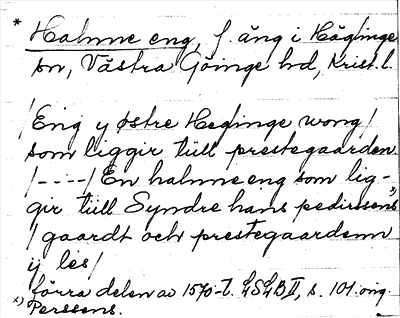 * Halmeeng, f. äng i Häglinge
sn, Västra Göinge hd, Krist. l.
/Eng y østre Heglinge wong/
som liggir tiill prestegaarden
/----/ En halmeeng som lig-
gir tiill Syndre hans pedirssens x)
/gaardt och prestegaardenn
ij les/
förra delen av 1570-t. LSLB II, s. 101. ong.
x) Perssens.